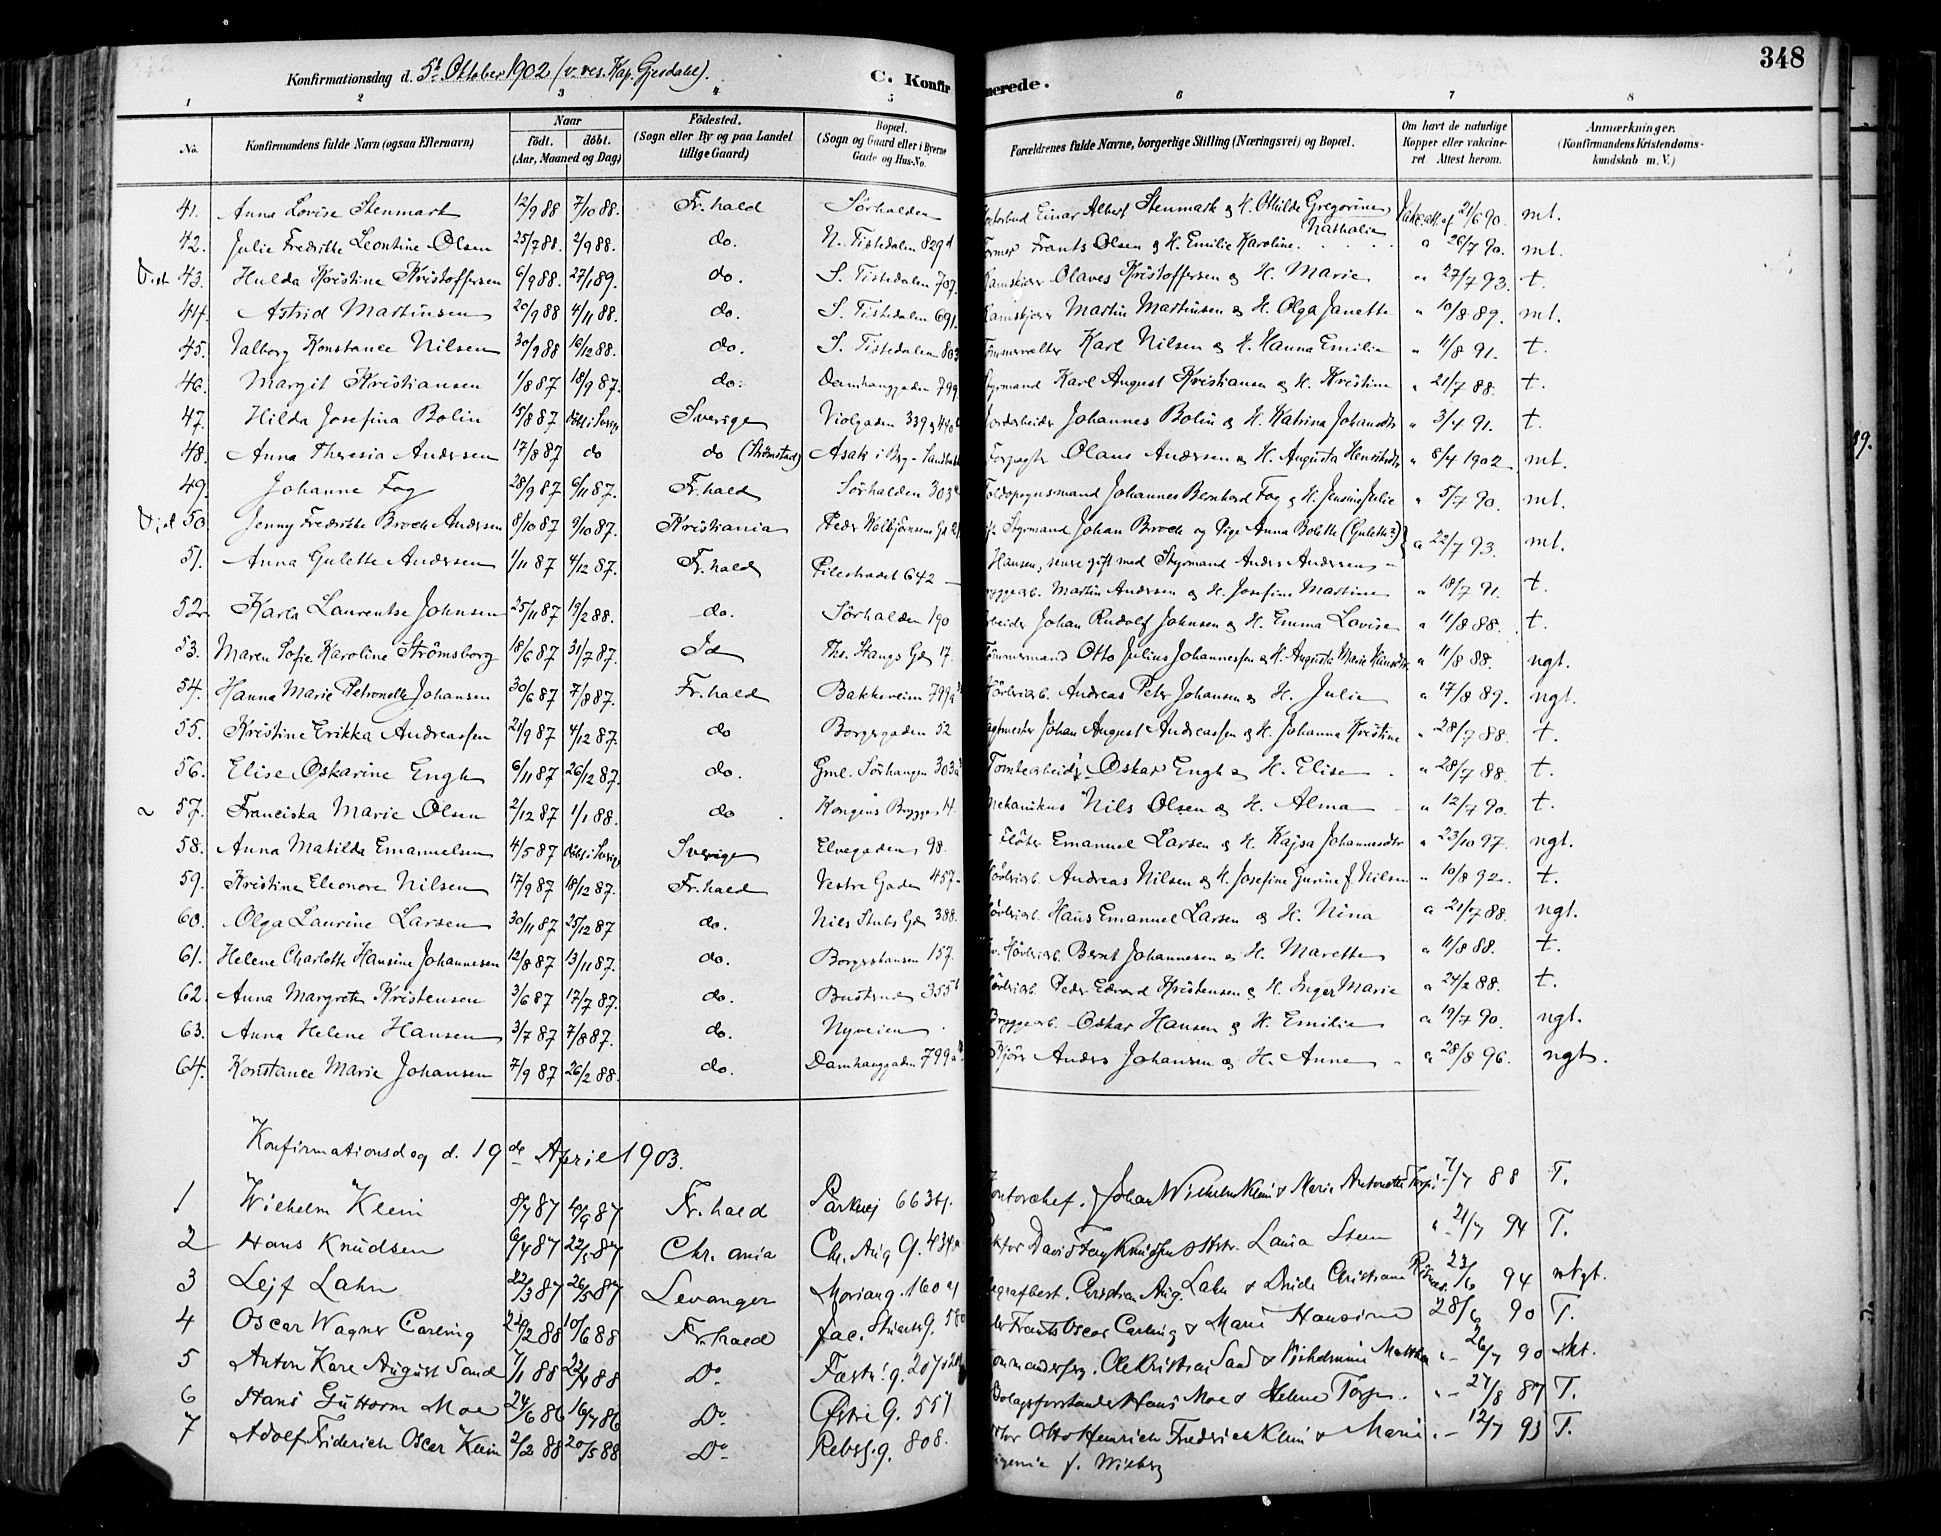 348
Konfirmationsdag d. 5te Oktober 1902 (v. res. Kap. Gjesdahl).
C. Konfirmerede.
1 2 3 4 5 6 7 8
No. Konfirmandens fulde Navn (ogsaa Efternavn) Naar født. døbt. (Aar, Maaned og Dag) Fødested. (Sogn eller By og paa Landet tillige Gaard) Bopæl. (Sogn og Gaard eller i Byerne Gade og Hus-No. Forældrenes fulde Navne, borgerlige Stilling (Næringsvei) og Bopæl. Om havt de naturlige Kopper eller vakcineret. Attest herom. Anmærkninger. (Konfirmandens Kristendomskundskab m. V.)
41. Anna Lovise Stenmark 12/9 88 7/10 88. Fr.hald Sörhalden Einar Albert Stenmark & H. Othilde Gregorine Nathalie 21/6 90. mt.
42. Julie Fredrikke Leontine Olsen 25/7 88. 2/9 88. do. N. Tistedalen 829d Former Frants Olsen & H. Emilie Karoline " 26/7 90. mt.
43. Hulda Kristine Kristoffersen 6/9 88. 27/1 89. do. S. Tistedalen 707. Olaves Kristoffersen & H. Marie " 27/7 93. t.
44. Astrid Martinsen 20/9 88 4/11 88. do. S. Tistedalen 691. Martin Martinsen & H. Olga Janette " 10/8 89. mt.
45. Valborg Konstance Nilsen 30/9 88 16/12 88. do. S. Tistedalen 803 Karl Nilsen & H. Hanna Emilie " 11/8 91. t.
46. Margit Kristiansen 1/8 87 18/9 87. do. Damhauggaden 799 Styrmand Karl August Kristiansen & H. Kristine " 21/7 88. t.
47. Hilda Josefina Bolin 15/8 87 Döbt i Sverige Sverige Violgaden 339 & 440 Jordarbeider Johannes Bolin & H. Katrina Johansdtr " 3/4 91. t.
48. Anna Theresia Andersen 17/8 87 do do (Strömstad) Asak i Berg - Forpagter Olaus Andersen & H. Augusta Henriksdtr " 8/4 1902 mt.
49. Johanne Fog 28/9 87 6/11 87. Fr.hald Sörhalden 303 Toldopsynsmand Johannes Bernhard Fog & H. Jensine Julie " 5/7 90. mt.
50. Jenny Fredrikke Broch Andersen 8/10 87 9/10 87. Kristiania Peder Kolbjörnsens Gd Styrmand Johan Broch og Pige Anna Bolette (Gulette?) Hansen, senere gift med Styrmand Anders Andersen " 22/7 93. mt.
51. Anna Gulette Andersen 1/11 87 4/12 87. Fr.hald Pilestrædet 642 Bryggearb. Martin Andersen & H. Josefine Martine " 18/7 91. t.
52. Karla Laurentse Johnsen 25/11 87 19/2 88. do. Sörhalden 190 Arbeider Johan Rudolf Johnsen & H. Emma Lovise " 11/8 88. t.
53. Maren Sofie Karoline Strömsborg 18/6 87 31/7 87. Id Ths. Stangs Gd. 17. Tömmermand Otto Julius Johannessen & H. Augusta Marie Hansdtr. " 11/8 88. ngt.
54. Hanna Marie Petronelle Johansen 30/6 87 7/8 87. Fr.hald Bakkeveien 799a Andreas Peter Johansen & H. Julie " 17/8 89. ngt.
55. Kristine Erikka Andreassen 21/9 87 4/12 87. do Borgergaden 52 Johan August Andreassen & H. Johanna Kristine " 28/7 88. t.
56. Elise Oskarine Engh 6/11 87 26/12 87. do. Gml. Sörhaugen 303 Tomtearbeider Oskar Engh & H. Elise " 28/7 88. t.
57. Franciska Marie Olsen 2/12 87 1/1 88. do Kongens Brygge 14. Mekanikus Nils Olsen & H. Alma " 12/7 90. t.
58. Anna Matilda Emanuelsen 4/5 87 Döbt i Sverige Sverige Elvegaden 98. Flöter Emanuel Larsen & H. Kajsa Johannesdtr " 23/10 97. ngt.
59. Kristine Eleonore Nilsen 17/9 87 18/12 87. Fr.hald Vestre Gaden 457. Andreas Nilsen & H. Josefine Gurine f. Nilsen " 10/8 92. t.
60. Olga Laurine Larsen 30/11 87 25/12 87 do. Nils Stubs Gd. 388. Hans Emanuel Larsen & H. Nina " 21/7 88. ngt.
61. Helene Charlotte Hansine Johannesen 12/8 87 13/11 87. do. Borgershausen 157. Bernt Johannesen & H. Marette " 11/8 88. t.
62. Anna Margrete Kristensen 3/6 87 17/7 87. do. Busterud 355b Peder Edvard Kristensen & H. Inger Marie " 24/2 88. t.
63. Anna Helene Hansen 3/7 87 7/8 87. do. Nyveien Bryggearb. Oskar Hansen & H. Emilie " 19/7 90. ngt.
64. Konstance Marie Johansen 7/9 87 26/2 88. do. Damhauggaden 799a Anders Johansen & H. Anne " 28/8 96. ngt.
Konfirmationsdag d. 19de April 1903.
1 Wilhelm Klein 8/7 87 4/9 87 Fr.hald Parkvej 663 Kontorchef. Johan Wilhelm Klein & Marie Antonette 7/7 88 T.
2 Hans Knudsen 6/4 87 22/5 87 Chr.ania Chr. Aug G. 434 David Knudsen & Laura Steen " 21/7 94 T.
3 Lejf Lahn 22/3 87 26/5 87 Levanger Moriang. 160 Christian Aug. Lahn & Christiane 23/6 94 mkgt.
4 Oscar Wagner Carling 22/2 88 10/6 88 Fr.hald Jac. G. 580 Frants Oscar Carling & Marie Hansine 28/6 90 T.
5 Anton Karl August Sand 7/1 88 22/4 88 Do Fæstn.g. 207 Ole Kristian Sand & " 26/7 90 mkt.
6 Hans Guttorm Moe 24/6 86 16/7 86 Do Østre G. 557 Hans Moe & Helene " 27/8 87 T.
7 Adolf Friderich Oscar Klein 2/2 88 20/5 88 Do Rebsl.g. 808. Otto Henrich Frederich Klein & Marie f. Wiberg " 12/7 93 T.